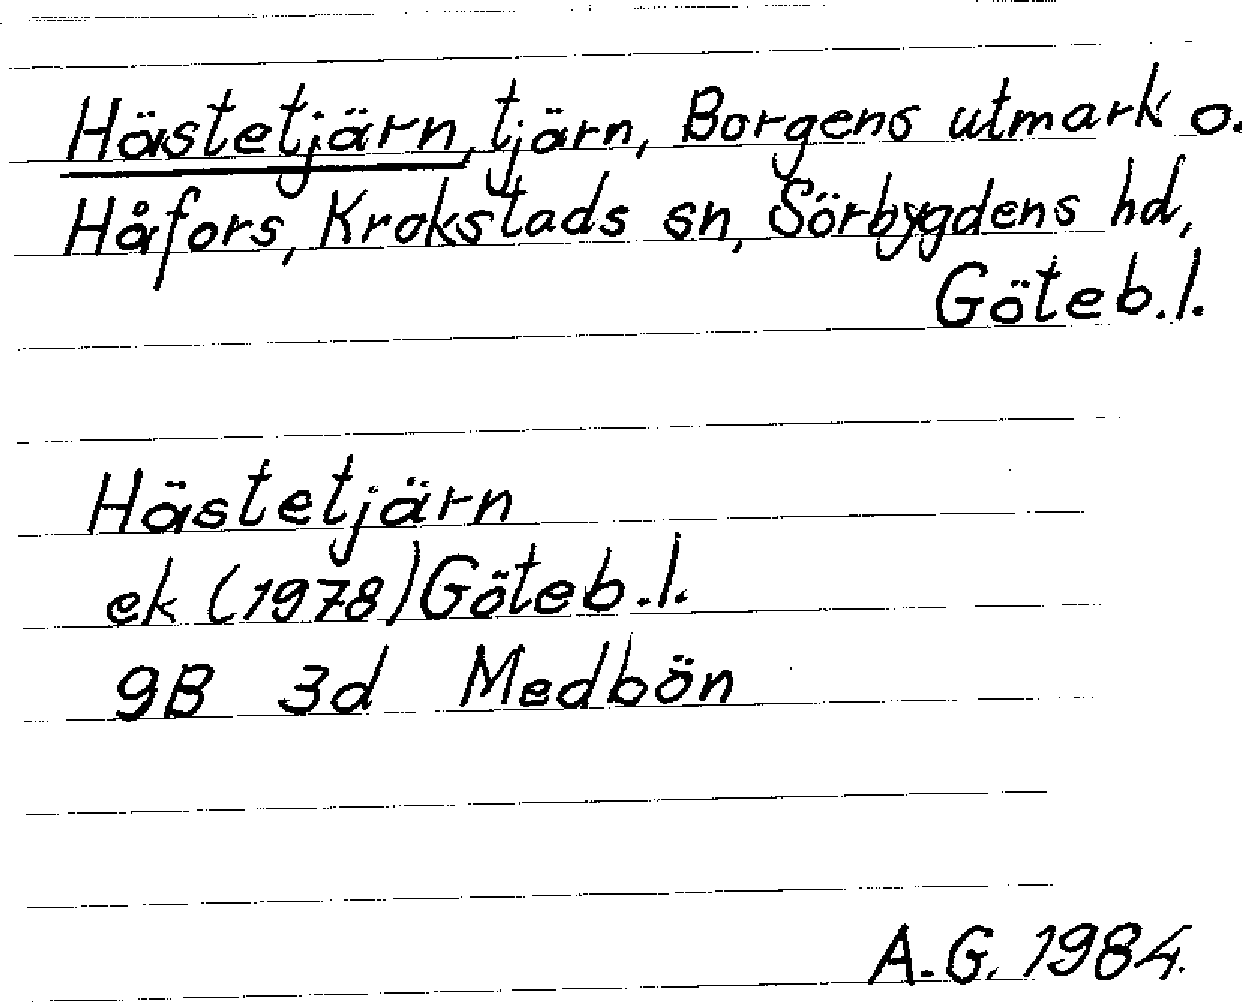 Hästetjärn, tjärn, Borgens utmark o.
Håfors, Krokstads sn, Sörbygdens hd,
Göteb.l.
Hästetjärn
ek (1978) Göteb.l.
9B 3d Medbön
A.G. 1984.